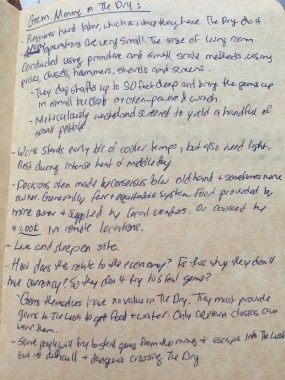 Gem Mining in The Dry:
- Requires hard labor, which is why they have The Dry do it
- operations are very small. The size of living room.
Conducted using primitive and small scale methods using
picks, chisels, hammers, shovels and screens.
- They dig shafts up to 30 feet deep and bring the gems up
in small buckets or oxen-powered winch.
- Meticulously washed and screened to yield a handful of
small pebbles.
- Work starts early b/c of cooler temps, but also need light.
Rest during intense heat of midday.
- Decisions often made by consensus b/w old hand + sometimes mine
owner. Generally fair + equitable system. Food provided by
mine owner + supplied by local vendors. Or cooked by
a cook in remote locations.
- Live and sleep on site.
- How does this relate to the economy? Is this why they don't
have currency? So they don't try to steal gems?
- Gems themselves have no value in The Dry. They must provide
gems to The Lush to get food + water. Only certain classes can
wear them.
- Some people will try to steal gems from the mines + escape into The Lush
but it's difficult + dangerous crossing The Dry.